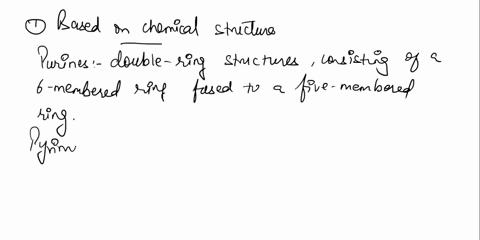 ① Based on chemical structure
Purines:- double-ring structures, consisting of a
6-membered ring fused to a five-membered
ring.
Pyrim